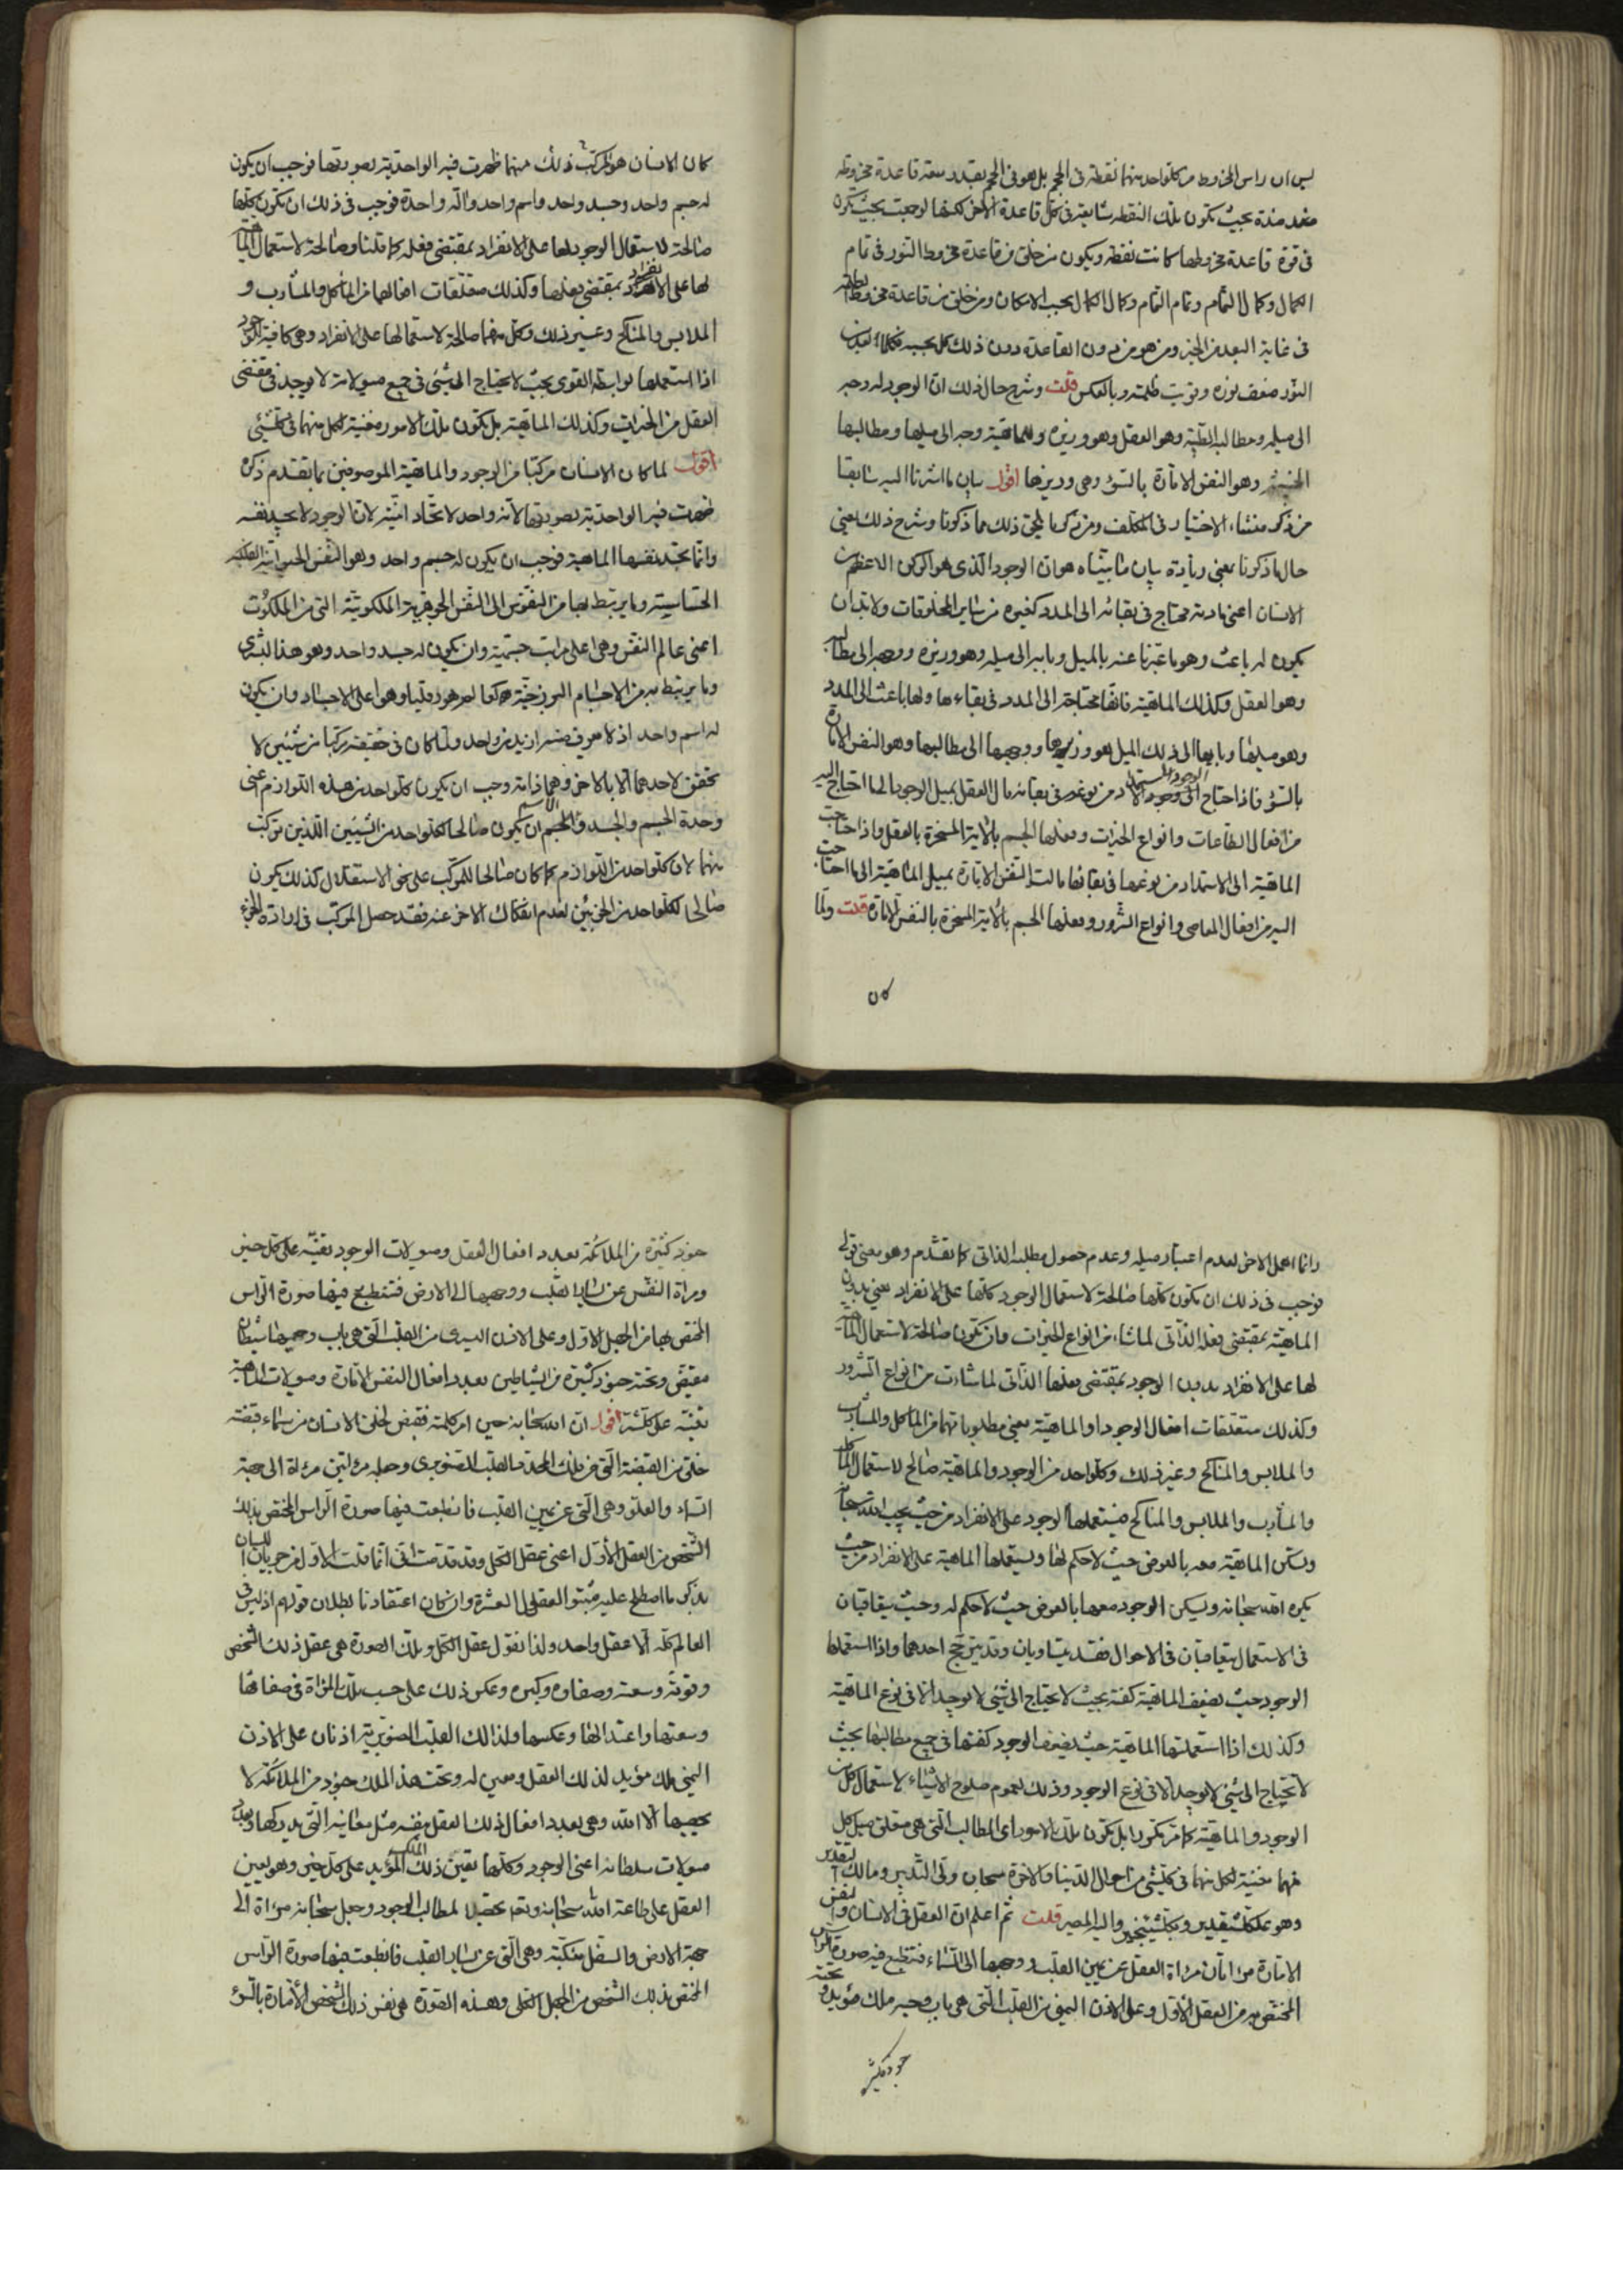 ليس ان راس المخروط من كل واحد منهما نقطة فى الحجم بل هو فى الحجم بقدر سعة قاعدة مخروطه
بحيث تكون تلك النقطة شايعة فى كل قاعدة الاخر لكنها لو جمعت بحيث تكون
فى قوة قاعدة مخروطها كانت نقطة ويكون من خلق من قاعدة مخروط النور فى تمام
الكمال وكمال التمام وتمام التمام وكمال الكمال بحسب الامكان ومن خلق من قاعدة مخروط الظلمة
فى غاية البعد من الخير ومن هو من دون القاعدة دون ذلك كل بحسبه فكلما بعد من
النور ضعف نوره وقويت ظلمته وبالعكس قلت وشرح حال ذلك ان الوجود له وجه
الى ميله ومطالبه الطيبة وهو العقل وهو وزيره وللماهية وجه الى ميلها ومطالبها
الخبيثة وهو النفس الامارة بالسوء وهى وزيرها اقول بيان ما اشرنا اليه سابقا
من ذكر منشاء الاختيار فى المكلف ومن ذكر ما يلحق ذلك مما ذكرنا وشرح ذلك يعنى
حال ما ذكرنا يعنى زيادة بيان ما بيناه هو ان الوجود الذى هو الركن الاعظم من
الانسان اعنى مادته محتاج فى بقائه الى المدد كغيره من ساير المخلوقات ولا بد ان
يكون له باعث وهو ما عبرنا عنه بالميل وبابه الى ميله وهو وزيره ووجهه الى مطالبه
وهو العقل وكذلك الماهية فانها محتاجة الى المدد فى بقاءها ولها باعث الى المدد
وهو ميلها وبابها الى ذلك الميل هو وزيرها ووجهها الى مطالبها وهو النفس الامارة
بالسوء فاذا احتاج الوجود الى الاستمداد من نوعه فى بقائه مال العقل بميل الوجود الى ما احتاج اليه
من افعال الطاعات وانواع الخيرات وفعلها الجسم بالالة المسخرة بالعقل واذا احتاجت
الماهية الى الاستمداد من نوعها فى بقائها مالت النفس الامارة بميل الماهية الى ما احتاجت
اليه من افعال المعاصى وانواع الشرور وفعلها الجسم بالالة المسخرة بالنفس الامارة قلت ولما
كان
كان الانسان هو المركب ذلك منهما ظهرت فيه الواحدية بصورتها فوجب ان يكون
له جسم واحد وجسد واحد واسم واحد والة واحدة فوجب فى ذلك ان تكون كلها
صالحة لاستعمال الوجود لها على الانفراد بمقتضى فعله كما قلنا وصالحة لاستعمال الماهية
لها على الانفراد بمقتضى فعلها وكذلك متعلقات افعالهما من المآكل والمشارب و
الملابس والمناكح وغير ذلك وكل منهما صالحة لاستعمالها على الانفراد وهى كافية للوجود
اذا استعملها بواسطة القوى بحيث لا يحتاج الى شئ فى جميع ميولاته لا يوجد فى مقتضى
العقل من الخيرات وكذلك الماهية بل تكون تلك الامور مغنية لكل منهما فى كل شئ
اقول لما كان الانسان مركبا من الوجود والماهية الموصوفين بما تقدم ذكره
ظهرت فيه الواحدية بصورتها لانه واحد لاتحاد انيته لان الوجود لا يجد نفسه
وانما تجد نفسها الماهية فوجب ان يكون له جسم واحد وهو النفس الحيوانية الفلكية
الحساسية وما يرتبط بها من النفوس الى النفس الجوهرية الملكوتية التى من الملكوت
اعنى عالم النفس وهى اعلى مراتب جسميته وان يكون له جسد واحد وهو هذا البشرى
وما يرتبط به من الاجسام البرزخية وهو اعلى الاجساد وان يكون
له اسم واحد اذ لا هو فى نفسه ازيد من واحد ولما كان فى حقيقته مركبا من شيئين لا
تحقق لاحدهما الا بالاخر وهما ذاته وجب ان يكون كل واحد من هذه اللوازم اعنى
وحدة الجسم والجسد والاسم ان يكون صالحا لكل واحد من الشيئين اللذين تركب
منهما لان كل واحد من اللوازم كما كان صالحا للمركب على نحو الاستقلال كذلك يكون
صالحا لكل واحد من الجزئين لعدم انفكاك الاخر عنه فقد حصل المركب فى ارادة الجزء
وانما اهمل الاخر لعدم اعتبار ميله وعدم حصول مطلبه الذاتى كما تقدم وهو معنى قولى
فوجب فى ذلك ان تكون كلها صالحة لاستعمال الوجود كلها على الانفراد يعنى بدون
الماهية بمقتضى فعله الذاتى لما شاء من انواع الخيرات وان تكون صالحة لاستعمال الماهية
لها على الانفراد بدون الوجود بمقتضى فعلها الذاتى لما شاءت من انواع الشرور
وكذلك متعلقات افعال الوجود او الماهية يعنى مطلوباتهما من المآكل والمشارب
والملابس والمناكح وغير ذلك وكل واحد من الوجود والماهية صالح لاستعمال المآكل
والمشارب والملابس والمناكح فيستعملها الوجود على الانفراد من حيث يحب الله سبحانه
وتسكن الماهية معه بالعرض حيث لا حكم لها ويستعملها الماهية على الانفراد من حيث
يكره الله سبحانه ويسكن الوجود معها بالعرض حيث لا حكم له وحيث يتعاقبان
فى الاستعمال يتعاقبان فى الاحوال فقد يتساويان وقد يترجح احدهما واذا استعملها
الوجود حيث تضعف الماهية كفته بحيث لا يحتاج الى شئ لا يوجد الا فى نوع الماهية
وكذلك اذا استعملتها الماهية حيث يضعف الوجود كفتها فى جميع مطالبها بحيث
لا تحتاج الى شئ لا يوجد الا فى نوع الوجود وذلك لعموم صلوح الاشياء لاستعمال كل من
الوجود والماهية كما مر تكون بل تكون تلك الامور اى المطالب التى هى متعلق ميل كل
منهما مغنية لكل منهما فى كل شئ من احوال الدنيا والاخرة سبحان ولى التدبير ومالك التقدير
وهو على كل شئ قدير وبكل شئ خبير واليه المصير قلت ثم اعلم ان العقل فى الانسان والنفس
الامارة مراتان مراة العقل عن يمين القلب ووجهها الى السماء فتنطبع فيه صورة الراس
المختص به من العقل الاول وعلى الاذن اليمنى من القلب التى هى باب وجهه ملك مؤيد وتحته
جنود كثيرة
جنود كثيرة من الملائكة بعدد افعال العقل وميولات الوجود تعينه على كل خير
ومراة النفس عن يسار القلب ووجهها الى الارض فتنطبع فيها صورة الراس
المختص بها من الجهل الاول وعلى الاذن اليسرى من القلب التى هى باب وجهها شيطان
مقيض وتحته جنود كثيرة من الشياطين بعدد افعال النفس الامارة وميولات الماهية
تعينه على كل شر اقول ان الله سبحانه حين امر كلمته فقبض لخلق الانسان من سماء قبضة
خلق من القبضة التى من فلك المحدد القلب الصنوبرى وجعله مراتين مراة الى جهة
السماء والعلو وهى التى عن يمين القلب فانطبعت فيها صورة الراس المختص بذلك
الشخص من العقل الاول اعنى عقل الكل وقد قدمت انى انما قلت الاول من جريان اللسان
بذكر ما اصطلح عليه مثبتوا العقول العشرة وان كان اعتقادنا بطلان قولهم اذ ليس فى
العالم كله الا عقل واحد ولذا نقول عقل الكل وتلك الصورة هى عقل ذلك الشخص
وقوته وسعته وصفاؤه وكبره وعكس ذلك على حسب تلك المراة فى صفائها
وسعتها واعتدالها وعكسها ولذلك القلب الصنوبرى اذنان على الاذن
اليمنى ملك مؤيد لذلك العقل ومعين له وتحت هذا الملك جنود من الملائكة لا
يحصيها الا الله وهى بعدد افعال ذلك العقل بنفسه مثل معانيه التى يدركها وبعدد
ميولات سلطانه اعنى الوجود وكلها تعين ذلك الملك المؤيد على كل خير وهو يعين
العقل على طاعة الله سبحانه وتحصيل لمطالب الوجود وجعل سبحانه مراة الى
جهة الارض والسفل منكبة وهى التى عن يسار القلب فانطبعت فيها صورة الراس
المختص بذلك الشخص من الجهل الكلى وهذه الصورة هى نفس ذلك الشخص الامارة بالسوء